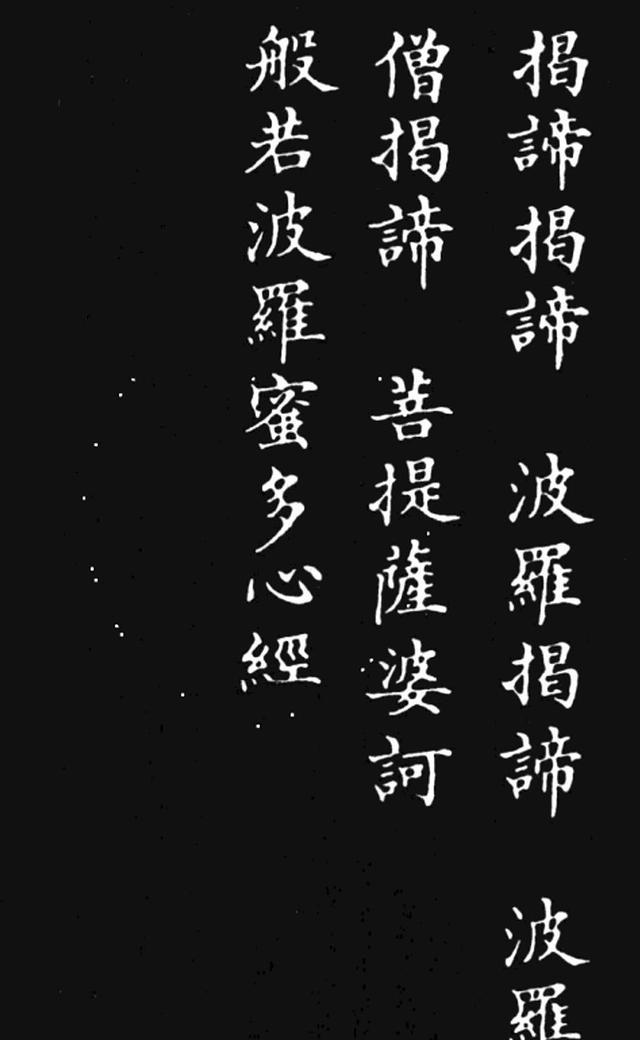 揭諦揭諦　波羅揭諦　波羅
僧揭諦　菩提薩婆訶
般若波羅蜜多心經